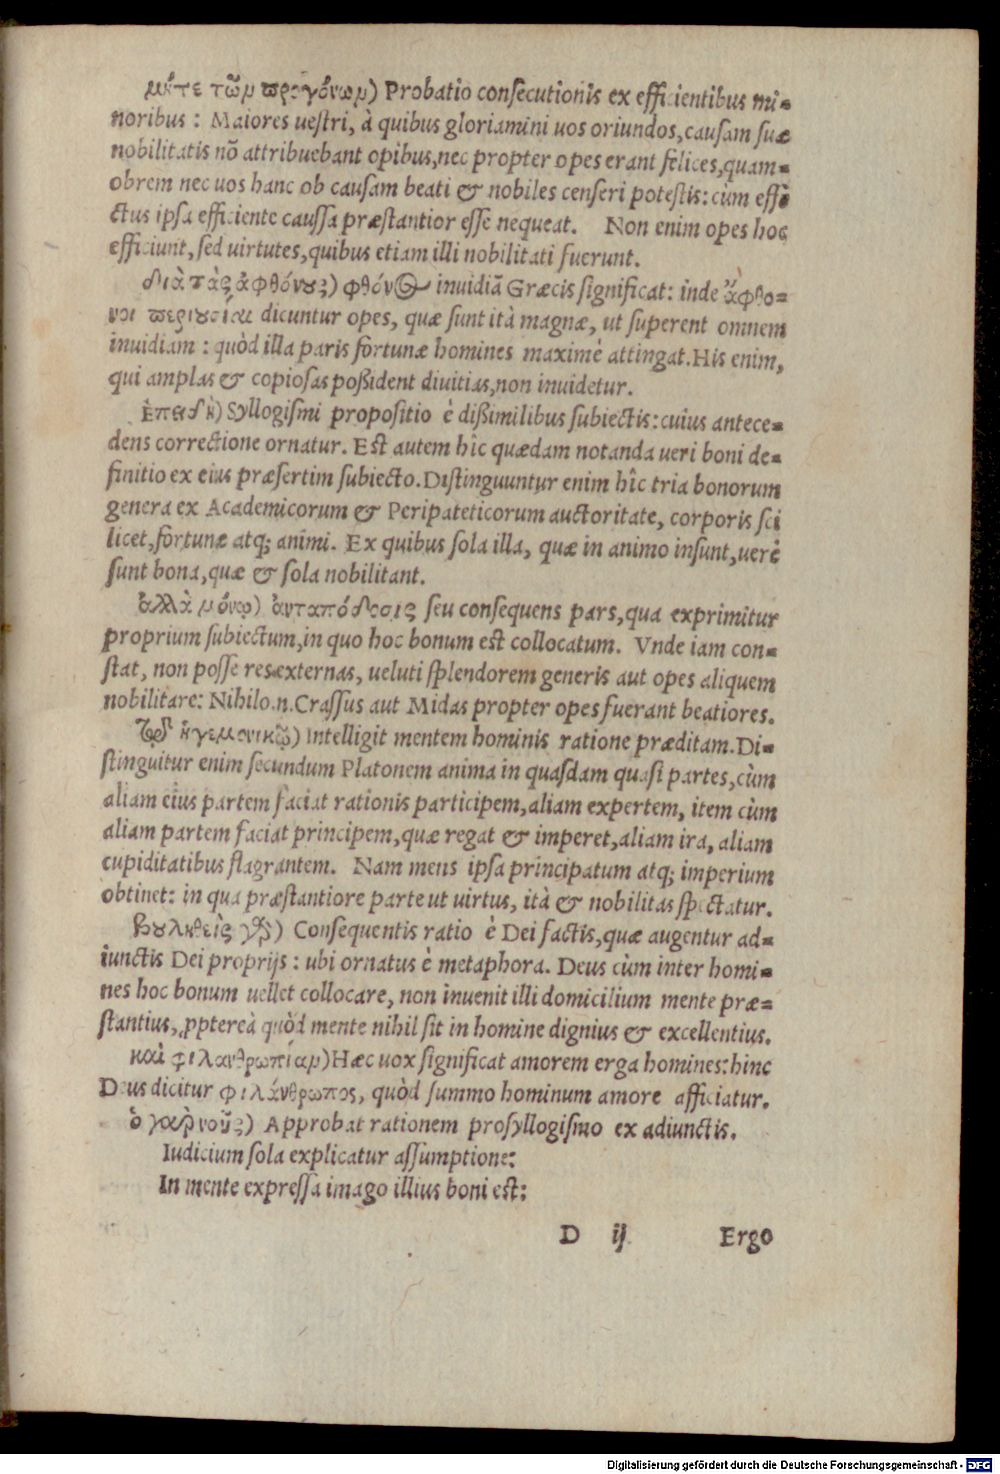 μήτε τῶν προγόνων) Probatio consecutionis ex efficientibus mi-
noribus: Maiores uestri, à quibus gloriamini uos oriundos, causam suæ
nobilitatis nō attribuebant opibus, nec propter opes erant felices, quam-
obrem nec uos hanc ob causam beati & nobiles censeri potestis: cùm effe
ctus ipsa efficiente caussa præstantior esse nequeat. Non enim opes hoc
efficiunt, sed uirtutes, quibus etiam illi nobilitati fuerunt.
διὰ τὰς ἀφθόνους) φθόνος inuidiā Græcis significat: inde ἄφθο-
νοι περιουσίαι dicuntur opes, quæ sunt ità magnæ, ut superent omnem
inuidiam: quòd illa paris fortunæ homines maximè attingat. His enim,
qui amplas & copiosas poßident diuitias, non inuidetur.
ἐπειδὴ) Syllogismi propositio è dißimilibus subiectis: cuius antece-
dens correctione ornatur. Est autem hîc quædam notanda ueri boni de-
finitio ex eius præsertim subiecto. Distinguuntur enim hîc tria bonorum
genera ex Academicorum & Peripateticorum auctoritate, corporis sci
licet, fortunæ atq; animi. Ex quibus sola illa, quæ in animo insunt, uerè
sunt bona, quæ & sola nobilitant.
ἀλλὰ μόνῳ) ἀνταπόδοσις seu consequens pars, qua exprimitur
proprium subiectum, in quo hoc bonum est collocatum. Vnde iam con-
stat, non posse res externas, ueluti splendorem generis aut opes aliquem
nobilitare: Nihilo.n. Crassus aut Midas propter opes fuerant beatiores.
τῷ δ' ἡγεμονικῷ) Intelligit mentem hominis ratione præditam. Di-
stinguitur enim secundum Platonem anima in quasdam quasi partes, cùm
aliam eius partem faciat rationis participem, aliam expertem, item cùm
aliam partem faciat principem, quæ regat & imperet, aliam ira, aliam
cupiditatibus flagrantem. Nam mens ipsa principatum atq; imperium
obtinet: in qua præstantiore parte ut uirtus, ità & nobilitas spectatur.
βουληθεὶς γὰρ) Consequentis ratio è Dei factis, quæ augentur ad-
iunctis Dei proprijs: ubi ornatus è metaphora. Deus cùm inter homi-
nes hoc bonum uellet collocare, non inuenit illi domicilium mente præ-
stantius, ꝓptereà quòd mente nihil sit in homine dignius & excellentius.
καὶ φιλανθρωπίαν) Hæc uox significat amorem erga homines: hinc
Deus dicitur φιλάνθρωπος, quòd summo hominum amore afficiatur.
ὁ γὰρ νοῦς) Approbat rationem prosyllogismo ex adiunctis.
Iudicium sola explicatur assumptione:
In mente expressa imago illius boni est:
D ij Ergo
Digitalisierung gefördert durch die Deutsche Forschungsgemeinschaft - DFG